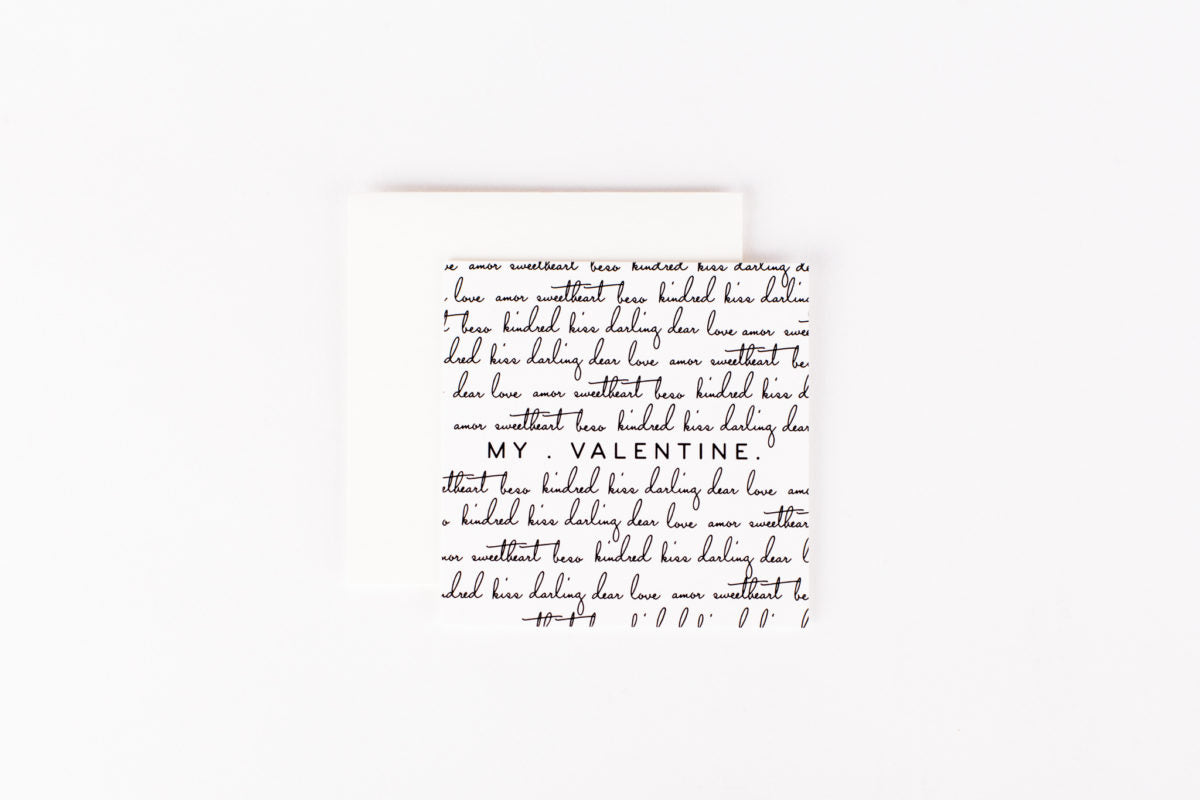 amor sweetheart beso kindred kiss darling
love amor sweetheart beso kindred kiss darling
beso kindred kiss darling dear love amor
kiss darling dear love amor sweetheart
dear love amor sweetheart beso kindred kiss
amor sweetheart beso kindred kiss darling dear
MY . VALENTINE.
beso kindred kiss darling dear love
kindred kiss darling dear love amor sweetheart
sweetheart beso kindred kiss darling dear
kiss darling dear love amor sweetheart